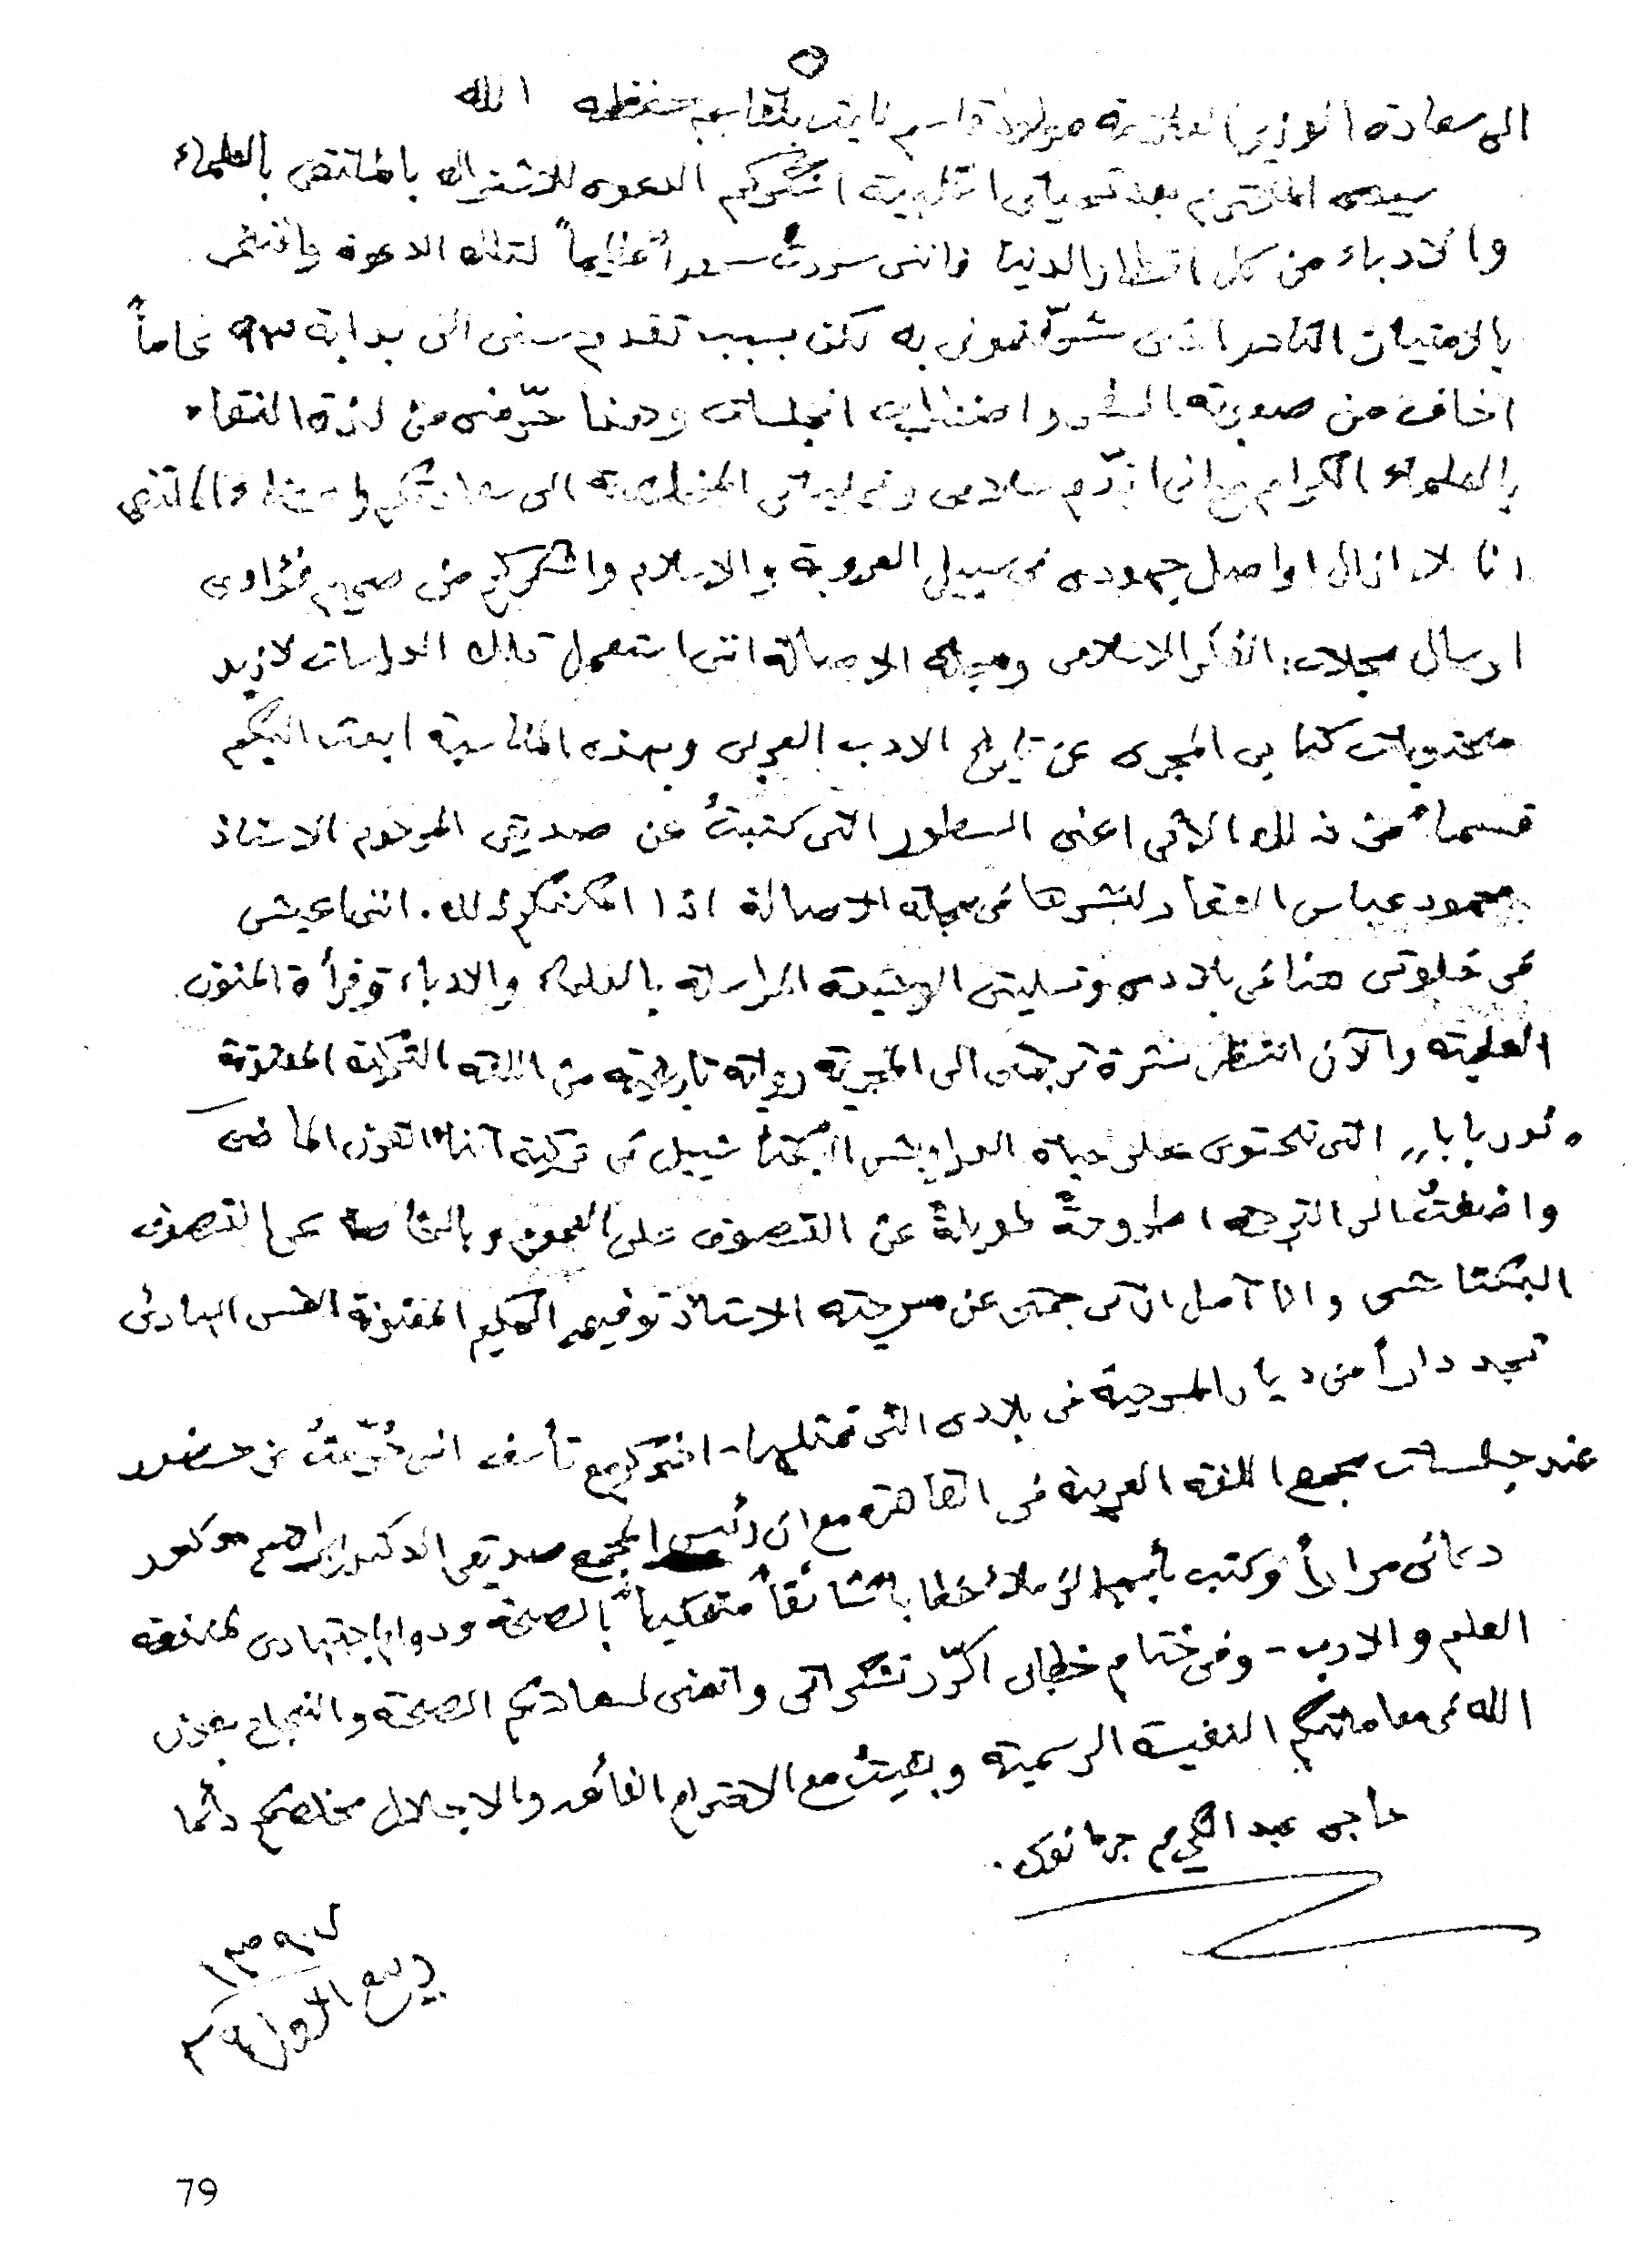 الى سعادة الوزير العلامة مولود قاسم نايت بلقاسم حفظه الله
سيدى المحترم بعد تحياتى القلبية اشكركم الدعوة للاشتراك بالملتقى بالعلماء
والادباء من كل اقطار الدنيا فاننى سررتُ سروراً عظيماً لتلك الدعوة وافتخر
بالامتياز النادر الذى شرّفتمونى به لكن بسبب تقدم سنى الى بداية ٩٣ عاماً
اخاف من صعوبة السفر واضطراب الجلسات وهذا حرّمنى من لذة اللقاء
بالعلماء الكرام مع انى اقدّم سلامى وتحياتى المخلصة الى سعادتكم واعضاء الملتقى
انا لا ازال اواصل جهودى فى سبيل العروبة والاسلام واشكركم من صميم فؤادى
ارسال مجلات الفكر الاسلامى ومجلة الاصالة اننى استعمل تلك الدراسات لازيد
محتويات كتابى المجرى عن تاريخ الادب العربى وبهذه المناسبة ابعث اليكم
قسماً من ذلك اعنى السطور التى كتبتُ عن صديقى المرحوم الاستاذ
محمود عباس العقاد لنشرها فى مجلة الاصالة اذا امكنكم ذلك. اننى اعيش
فى خلوتى هنا فى بلادى وتسليتى الوحيدة المراسلة بالعلماء والادباء وقرأة المتون
العلمية والآن انتظر نشرة ترجمتى الى المجرية رواية تاريخية من اللغة التركية المعنونة
„نور بابا” التى تحتوى على حياة الدراويش فى تركية اثناء القرن الماضى
واضفتُ الى الترجمة اطروحةً طويلةً عن التصوف على العموم وبالخاصة عن التصوف
البكتاشى وانا آمل ان ترجمتى عن مسرحية الاستاذ توفيق الحكيم المعنونة
تجد داراً من ديار المسرحية فى بلادى التى تمثلها - اشكركم مع تأسف انى حُرّمتُ من حضور
عند جلسات مجمع اللغة العربية فى القاهرة مع ان رئيس المجمع صديقى الدكتور ابراهيم مدكور
دعانى مراراً وكتب باسم الزملاء خطاباً شائقاً بالصحة ودوام اجتهادى لمنفعة
العلم والادب - وفى ختام خطابى اكرّر تشكراتى واتمنى لسعادتكم الصحة والنجاح بعون
الله فى معاملاتكم النفيسة الرسمية وبقيتُ مع الاحترام الفائق والاجلال مخلصكم دائما
حاجى عبد الكريم جرمانوس.
١٣٩٧
ربيع الاول ٢٩
79